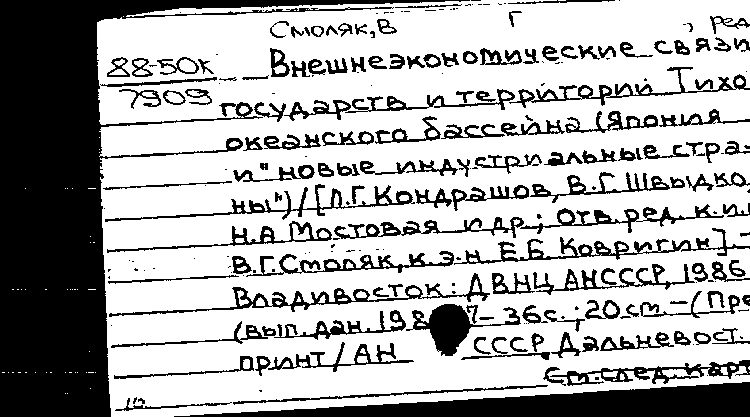 Смоляк, В Г , ред
88-50к Внешнеэкономические связи
7909 государств и территорий Тихо
океанского бассейна (Япония
и "новые индустриальные стра-
ны") / [Л.Г. Кондрашов, В.Г. Швыдко,
Н.А. Мостовая и др.; отв. ред. к.и.
В.Г. Смоляк, к.э.н. Е.Б. Ковригин]. -
Владивосток: ДВНЦ АНСССР, 1986
(вып. дан. 198 7 - 36с.; 20 см. - (Пре
принт / АН СССР, Дальневост.
См. след. карт